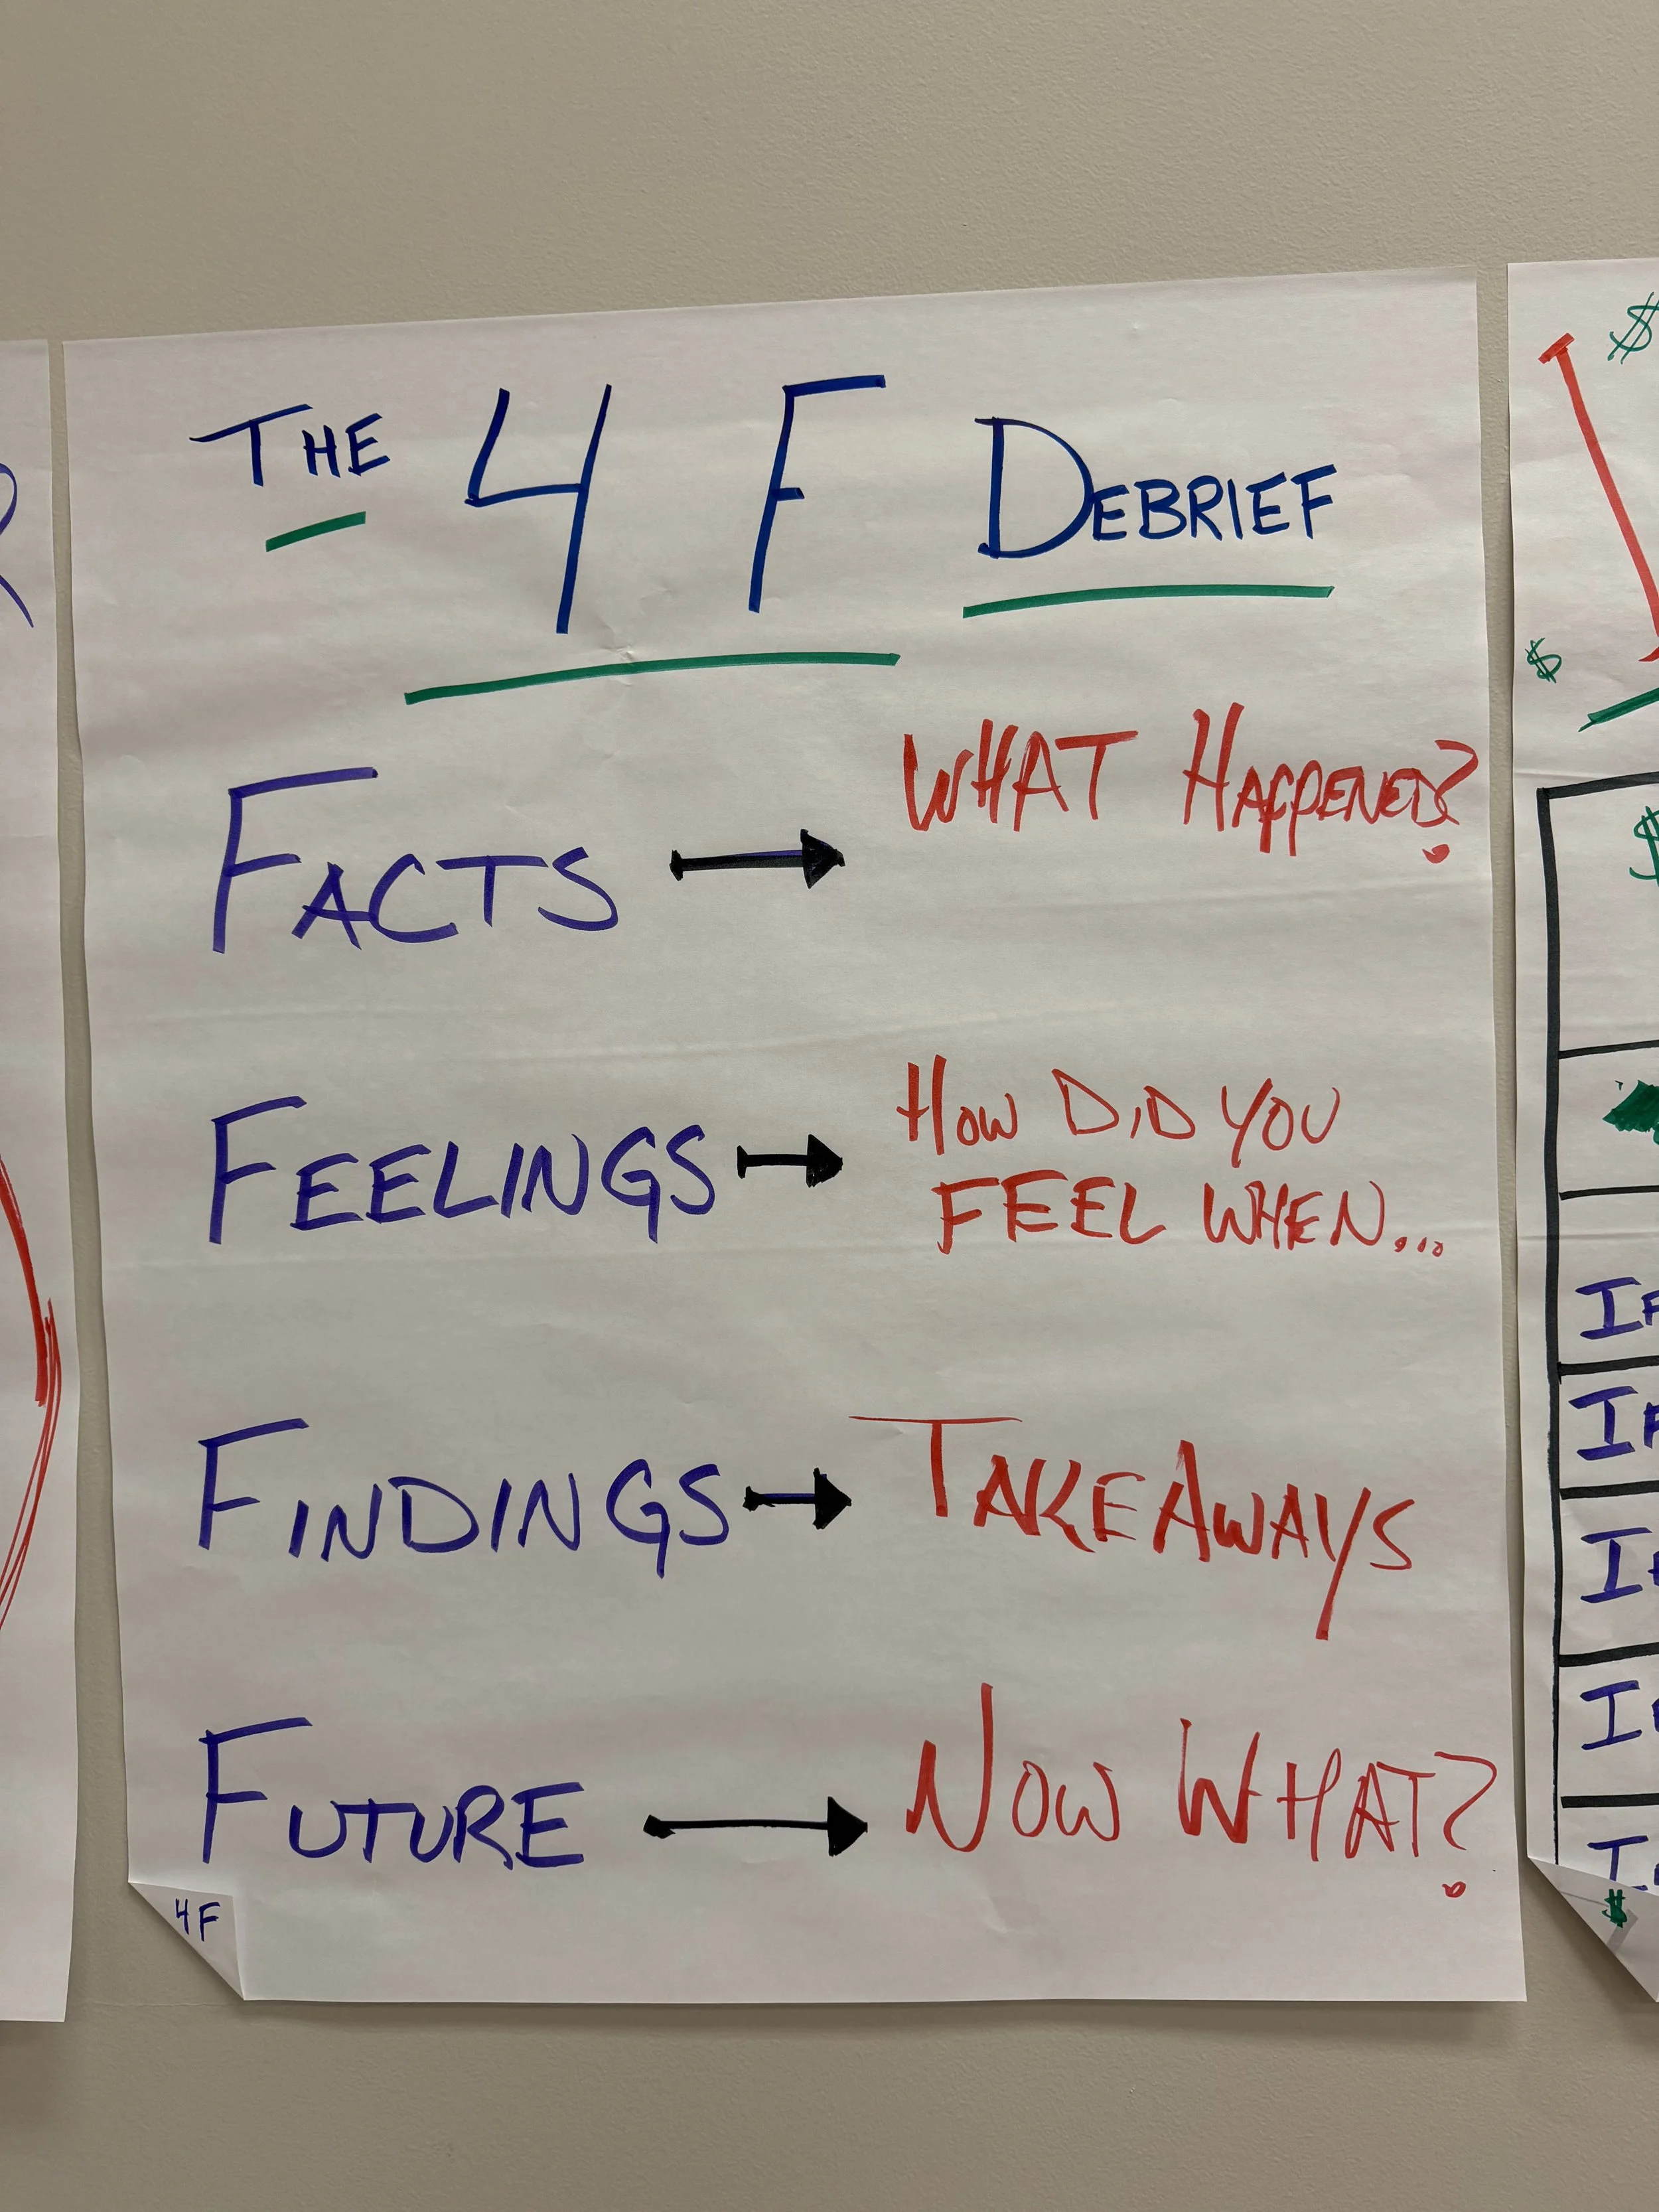 THE 4 F DEBRIEF
FACTS → WHAT HAPPENED?
FEELINGS → HOW DID YOU
FEEL WHEN...
FINDINGS → TAKEAWAYS
FUTURE → NOW WHAT?
4F
$
$
$
$